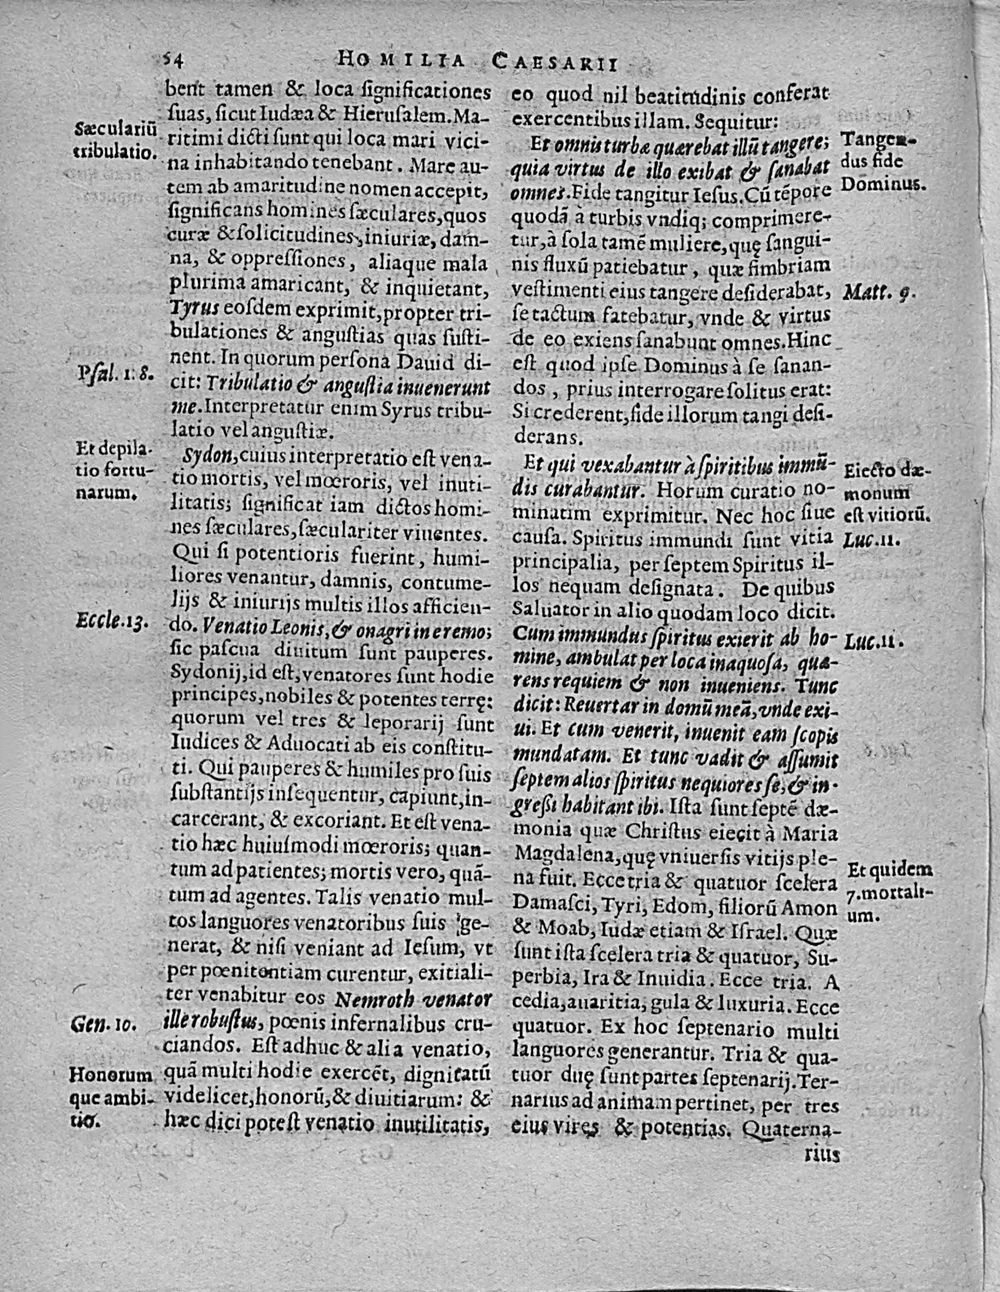 54 HOMILIA CAESARII
bent tamen & loca significationes
suas, sicut Iudæa & Hierusalem. Ma-
ritimi dicti sunt qui loca mari vici-
na inhabitando tenebant. Mare au-
tem ab amaritudine nomen accepit,
significans homines sæculares, quos
curæ & solicitudines, iniuriæ, dam-
na, & oppressiones, aliaque mala
plurima amaricant, & inquietant,
Tyrus eosdem exprimit, propter tri-
bulationes & angustias quas susti-
nent. In quorum persona Dauid di-
cit: Tribulatio & angustia inuenerunt
me. Interpretatur enim Syrus tribu-
latio vel angustiæ.
Sydon, cuius interpretatio est vena-
tio mortis, vel mœroris, vel inuti-
litatis; significat iam dictos homi-
nes sæculares, sæculariter viuentes.
Qui si potentioris fuerint, humi-
liores venantur, damnis, contume-
lijs & iniurijs multis illos afficien-
do. Venatio Leonis, & onagri in eremo;
sic pascua diuitum sunt pauperes.
Sydonij, id est, venatores sunt hodie
principes, nobiles & potentes terrę:
quorum vel tres & leporarij sunt
Iudices & Aduocati ab eis constitu-
ti. Qui pauperes & humiles pro suis
substantijs insequentur, capiunt, in-
carcerant, & excoriant. Et est vena-
tio hæc huiusmodi mœroris; quan-
tum ad patientes; mortis vero, quã-
tum ad agentes. Talis venatio mul-
tos languores venatoribus suis ge-
nerat, & nisi veniant ad Iesum, vt
per pœnitentiam curentur, exitiali-
ter venabitur eos Nemroth venator
ille robustus, pœnis infernalibus cru-
ciandos. Est adhuc & alia venatio,
quã multi hodie exercẽt, dignitatũ
videlicet, honorũ, & diuitiarum: &
hæc dici potest venatio inutilitatis,
Sæculariũ
tribulatio.
Psal. 118.
Et depila-
tio fortu-
narum.
Eccle. 13.
Gen. 10.
Honorum
que ambi-
tio.
eo quod nil beatitudinis conferat
exercentibus illam. Sequitur:
Et omnis turba quærebat illũ tangere;
quia virtus de illo exibat & sanabat
omnes. Fide tangitur Iesus. Cũ tẽpore
quodã à turbis vndiq; comprimere-
tur, à sola tamẽ muliere, quę sangui-
nis fluxũ patiebatur, quæ fimbriam
vestimenti eius tangere desiderabat,
se tactum fatebatur, vnde & virtus
de eo exiens sanabunt omnes. Hinc
est quod ipse Dominus à se sanan-
dos, prius interrogare solitus erat:
Si crederent, fide illorum tangi desi-
derans.
Et qui vexabantur à spiritibus immũ-
dis curabantur. Horum curatio no-
minatim exprimitur. Nec hoc siue
causa. Spiritus immundi sunt vitia
principalia, per septem Spiritus il-
los nequam designata. De quibus
Saluator in alio quodam loco dicit.
Cum immundus spiritus exierit ab ho-
mine, ambulat per loca inaquosa, quæ-
rens requiem & non inueniens. Tunc
dicit: Reuertar in domũ meã, vnde exi-
ui. Et cum venerit, inuenit eam scopis
mundatam. Et tunc vadit & assumit
septem alios spiritus nequiores se, & in-
gressi habitant ibi. Ista sunt septẽ dæ-
monia quæ Christus eiecit à Maria
Magdalena, quę vniuersis vitijs ple-
na fuit. Ecce tria & quatuor scelera
Damasci, Tyri, Edom, filiorũ Amon
& Moab, Iudæ etiam & Israel. Quæ
sunt ista scelera tria & quatuor, Su-
perbia, Ira & Inuidia. Ecce tria. A
cedia, auaritia, gula & luxuria. Ecce
quatuor. Ex hoc septenario multi
languores generantur. Tria & qua-
tuor duę sunt partes septenarij. Ter-
narius ad animam pertinet, per tres
eius vires & potentias. Quaterna-
rius
Tangen-
dus fide
Dominus.
Matt. 9.
Eiectio dæ-
monum
est vitiorũ.
Luc. 11.
Luc. 11.
Et quidem
7. mortali-
um.